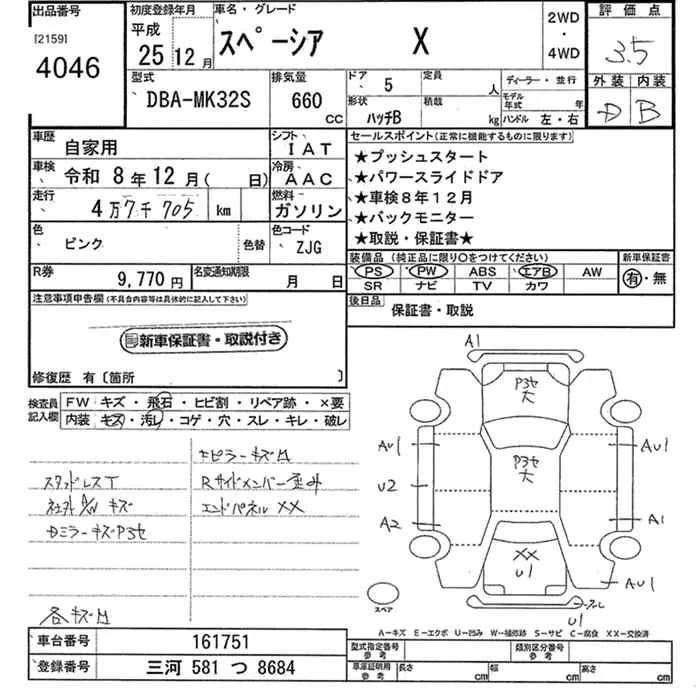 出品番号
[2159]
4046
初度登録年月
平成
25 12月
車名・グレード
スペーシア X
2WD
・
4WD
評価点
3.5
外装 内装
D B
型式
DBA-MK32S
排気量
660 CC
ドア 5
定員 人
形状 ハッチB
積載 kg
ディーラー・並行
モデル年式 年
ハンドル 左・右
車歴 自家用
シフト IAT
車検 令和 8年 12月( 日)
冷房 AAC
走行 4万7千705 km
燃料 ガソリン
色 ピンク
色替
色コード ZJG
R券 9,770円
名変通知期限 月 日
セールスポイント(正常に機能するものに限ります)
★プッシュスタート
★パワースライドドア
★車検8年12月
★バックモニター
★取説・保証書★
装備品(純正品に限り○をつけてください)
PS PW ABS エアB AW
SR ナビ TV カワ
新車保証書
有・無
後日品 保証書・取説
注意事項申告欄(不具合内容等は具体的に記入して下さい)
新車保証書・取説付き
修復歴 有〔箇所 〕
検査員記入欄
FW キズ・飛石・ヒビ割・リペア跡・×要
内装 キズ・汚レ・コゲ・穴・スレ・キレ・破レ
スタッドレスT
社外A/W キズ
Dミラーキズ P3セ
各キズ凹
キピラーキズ凹
Rサイドメンバー歪み
エンドパネル XX
A1
P3セ
大
AU1
AU1
P3セ
大
U2
A2
A1
XX
U1
AU1
U1
スペア
A−キズ E−エクボ U−凹み W−補修跡 S−サビ C−腐食 XX−交換済
車台番号 161751
登録番号 三河 581 つ 8684
型式指定番号 参考
類別区分番号 参考
車庫証明用 参考
長さ cm
幅 cm
高さ cm